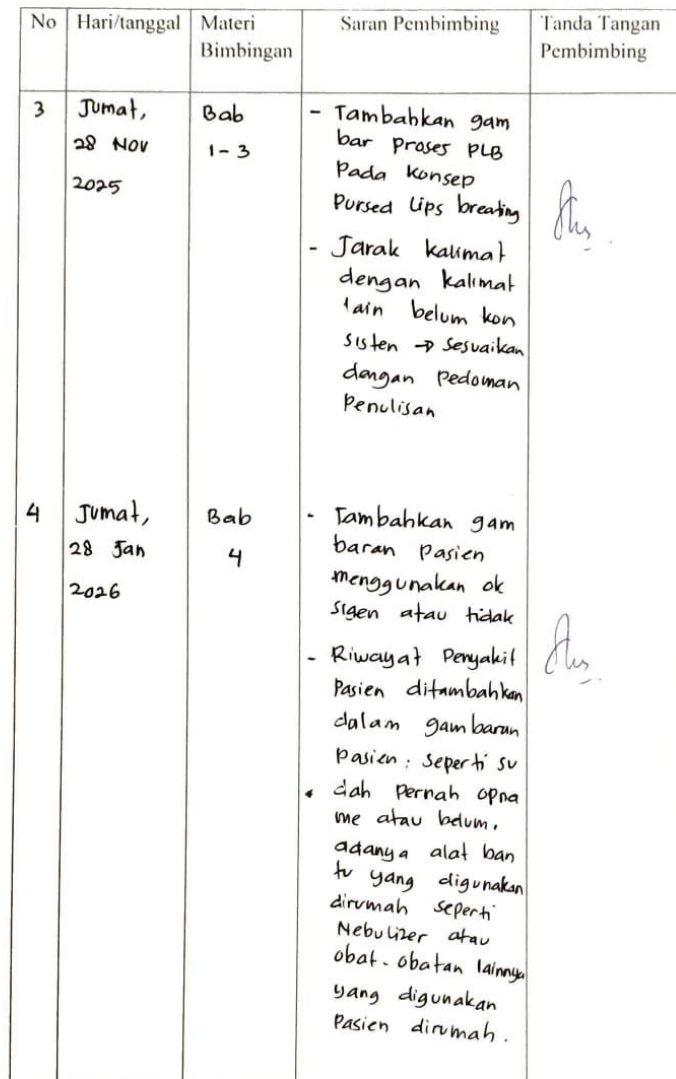 No Hari/tanggal Materi Bimbingan Saran Pembimbing Tanda Tangan Pembimbing
3 Jumat, 28 Nov 2025
Bab 1-3
- Tambahkan gam
bar proses PLB
Pada Konsep
Pursed Lips breating
- Jarak kalimat
dengan kalimat
lain belum kon
sisten → Sesuaikan
dengan Pedoman
Penulisan
4 Jumat, 28 Jan 2026
Bab 4
- Tambahkan gam
baran pasien
menggunakan ok
sigen atau tidak
- Riwayat Penyakit
Pasien ditambahkan
dalam gambaran
pasien, seperti su
dah pernah opna
me atau belum,
adanya alat ban
tu yang digunakan
dirumah seperti
Nebulizer atau
obat-obatan lainnya
yang digunakan
Pasien dirumah.